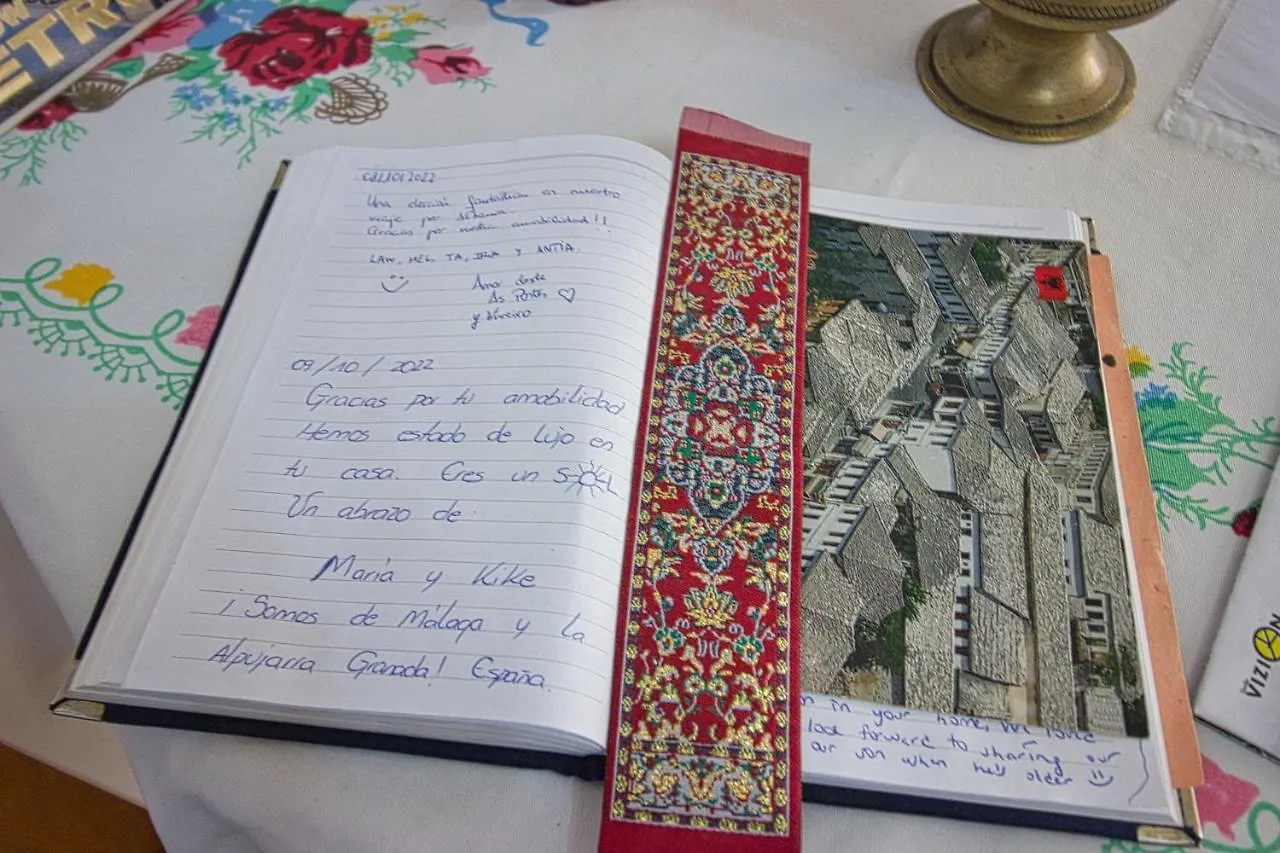 W
ETRO
08/10/2022
Una elección fantástica en nuestro
viaje por
Gracias por vuestra amabilidad!!
LAW, MEL, TA, Y ANTÍA.
Amor desde
As Pontes ♡
y Viveiro
09/10/2022
Gracias por tu amabilidad
Hemos estado de lujo en
tu casa. Eres un SOL
Un abrazo de
María y Kike
¡Somos de Málaga y la
Alpujarra Granada! España.
in your home, we love
look forward to sharing our
our son when he's older
VIZION